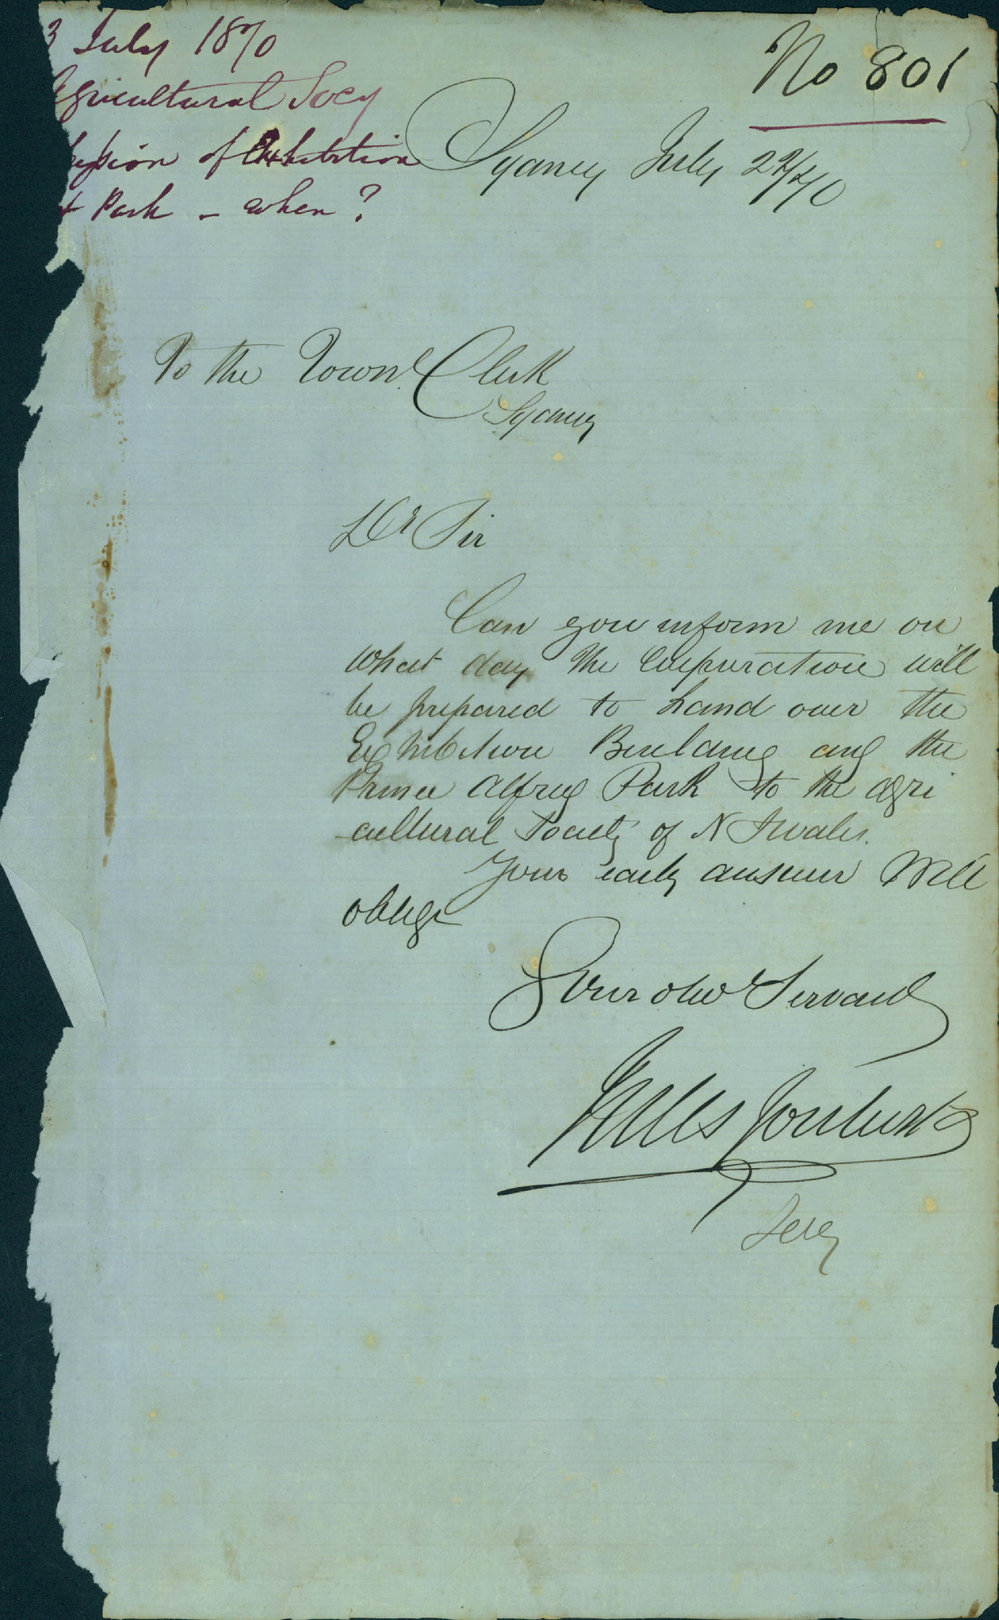 3 July 1870
Agricultural Socy
session of Exhibition
& Park - when?
No 801
Sydney July 22/70
To the Town Clerk
Sydney
Dr Sir
Can you inform me on
what day the Corporation will
be prepared to hand over the
Exhibition Building and the
Prince Alfred Park to the Agri
cultural Society of N S Wales.
Your early answer will
oblige
Your obdt Servant
Jules Joubert
Secy